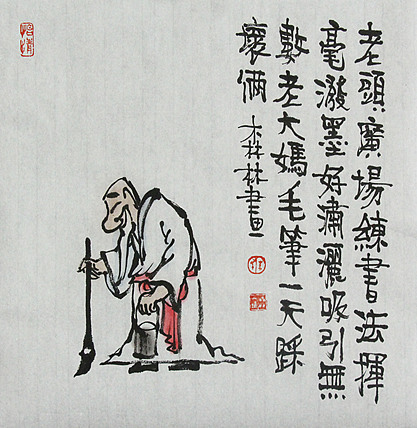 老頭廣場練書法揮
毫潑墨好瀟灑吸引無
數老大媽毛筆一天踩
壞倆
木林林畫